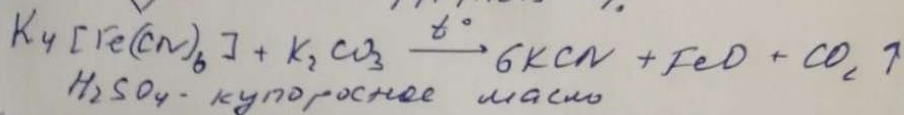 K₄[Fe(CN)₆] + K₂CO₃ —t°→ 6KCN + FeO + CO₂ ↑
H₂SO₄ - купоросное масло